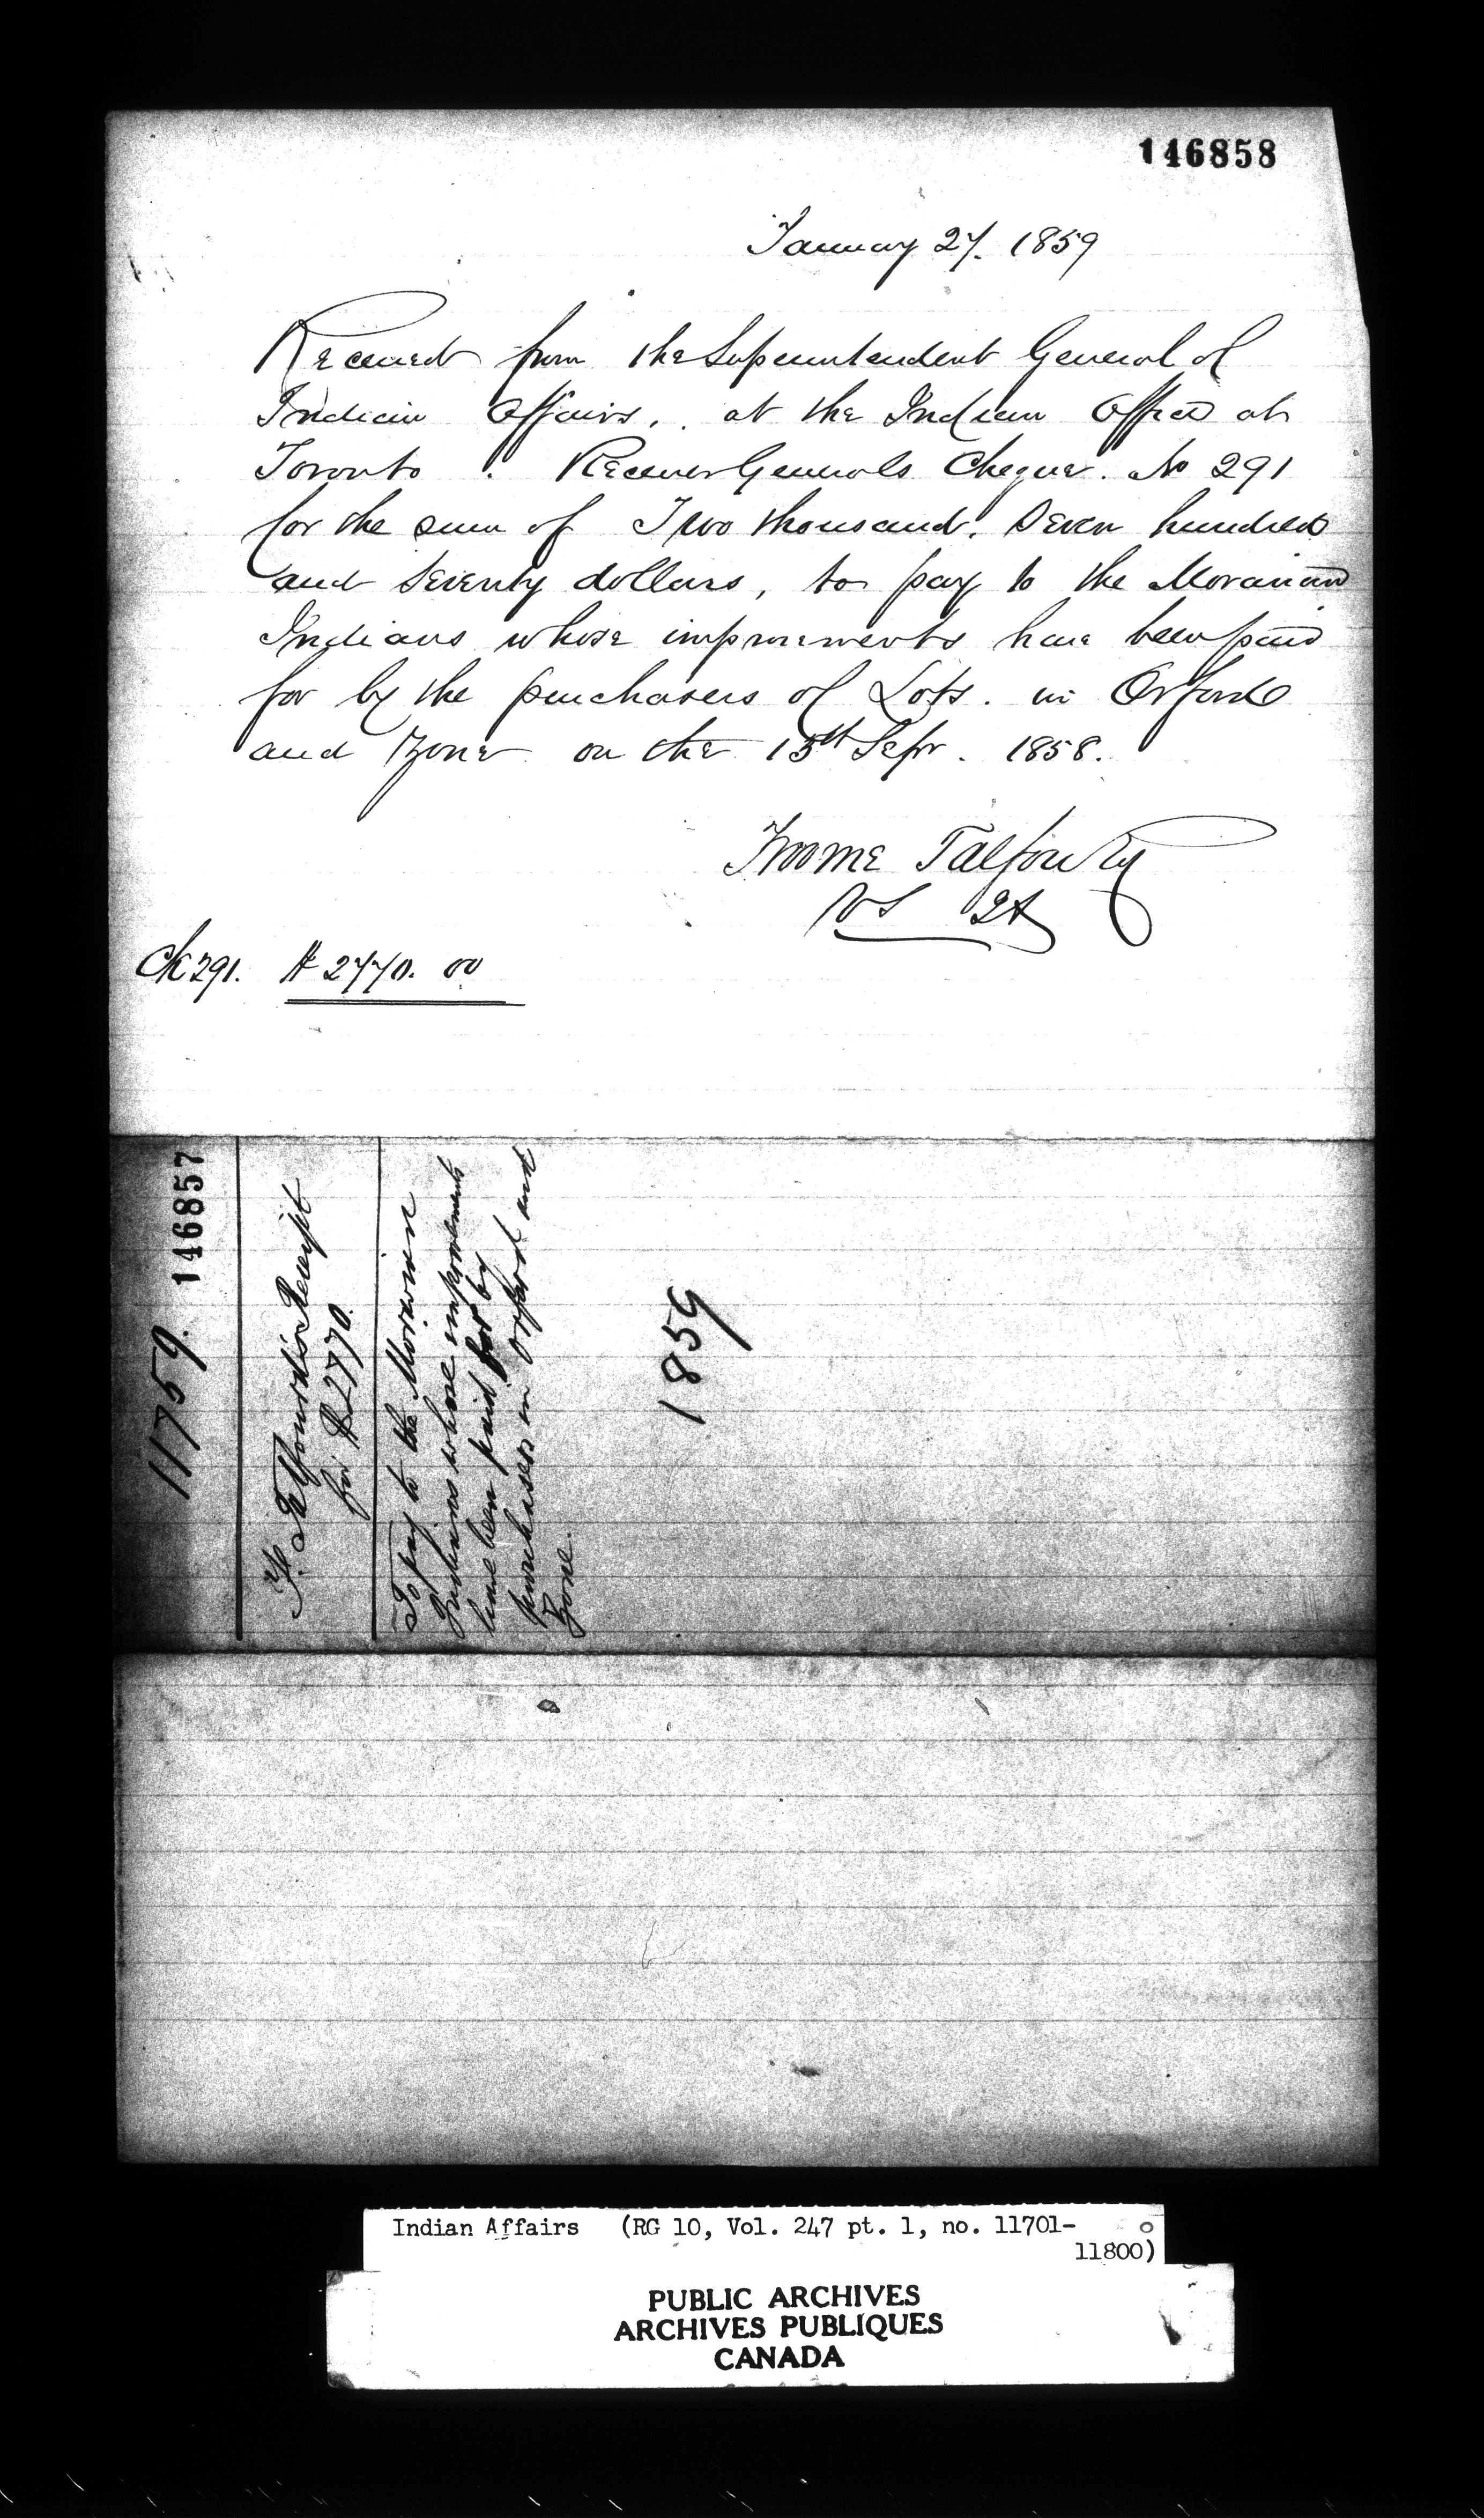 146858
January 27. 1859
Received from the Superintendent General of
Indian Affairs, . at the Indian Office at
Toronto . Receiver Generals Cheque. No 291
for the sum of Two thousand. Seven hundred
and Seventy dollars, to pay to the Moravian
Indians whose improvements have been paid
for by the purchasers of Lots. in Orford
and Zone on the 15th Sepr. 1858.
Froome Talfourd
VS IA
Ck 291. $ 2770. 00
11759. 146857
F. Talfourd's Receipt
for $2770.
To pay to the Moravian
Indians whose improvements
have been paid for by
purchasers in Orford and
Zone.
1859
Indian Affairs (RG 10, Vol. 247 pt. 1, no. 11701-
11800)
PUBLIC ARCHIVES
ARCHIVES PUBLIQUES
CANADA